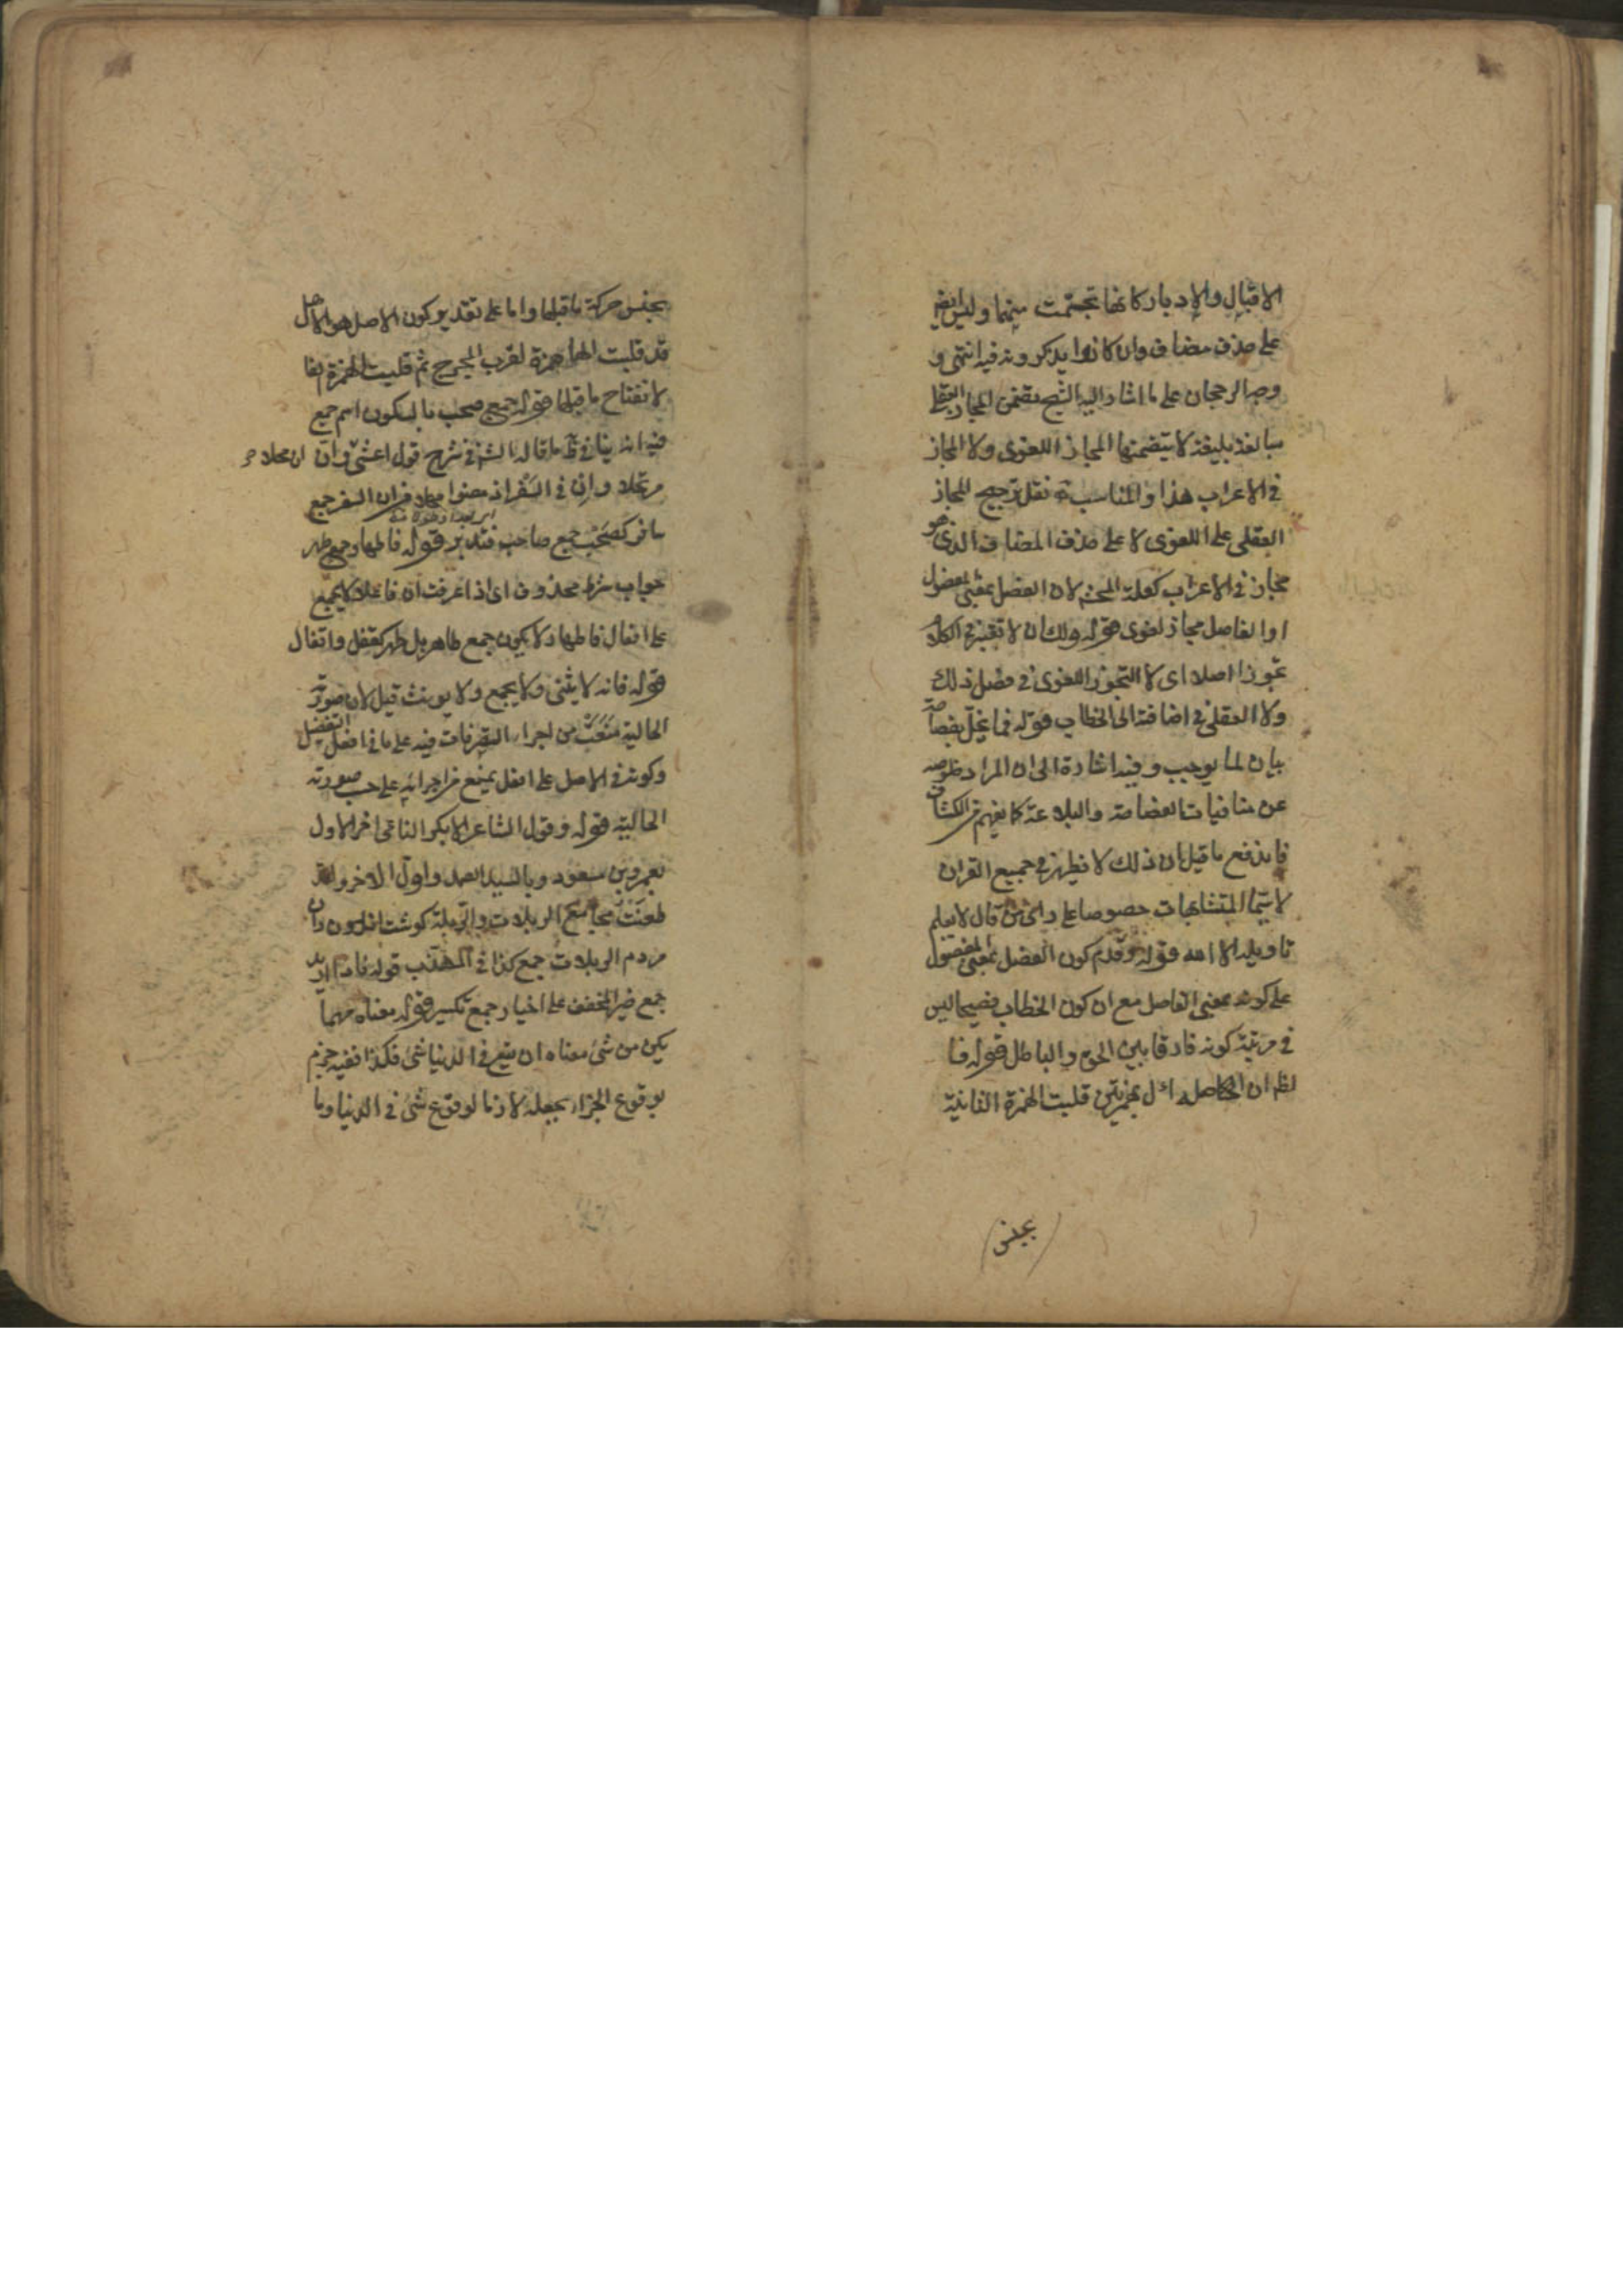 الاقبال والادبار كانها تجسمت منهما وليس ايضا
على حذف مضاف وان كانوا يذكرونه فيه انتهى و
وجه الرجحان على ما اشار اليه الشيخ تضمن المجاز العقلي
مبالغة بليغة لا يتضمنها المجاز اللغوى ولا المجاز
فى الاعراب هذا والمناسب نقل ترجيح المجاز
العقلى على اللغوى لا على حذف المضاف الذى هو
مجاز فى الاعراب كعلة المحشى لان الفصل بمعنى المفصول
او الفاصل مجاز لغوى قوله ولك ان لا تعتبر فى الكلام
تجوزا اصلا اى لا التجوز اللغوى فى فصل ذلك
ولا العقلى فى اضافته الى الخطاب قوله فما يخل بفصاحته
بيان لما يوجب وفيه اشارة الى ان المراد خلوصه
عن منافيات الفصاحة والبلاغة كما يفهم من الكشاف
فاندفع ما قيل ان ذلك لا يظهر فى جميع القران
لا سيما المتشابهات خصوصا على راى من قال لا يعلم
تاويله الا الله قوله وقدم كون الفصل بمعنى المفصول
على كونه بمعنى الفاصل مع ان كون الخطاب فصيحا ليس
فى مرتبة كونه فارقا بين الحق والباطل قوله فا
لظ ان الحاصل اءل بهمزتين قلبت الهمزة الثانية
بجنس
بجنس حركة ما قبلها واما على تقدير كون الاصل هو الاهل
قد قلبت الهاء همزة لقرب المخرج ثم قلبت الهمزة الفا
لانفتاح ما قبلها قوله جمع صحب بالسكون اسم جمع
فيه انه ينافى ما قاله فى شرح قول اعشى وان ان محلا و
مرتحلا وان فى السفر اذ مضوا مهلا فان السفر جمع
سافر كصحب جمع صاحب فتدبر قوله فاطهار جمع طهر
جواب شرط محذوف اى اذا عرفت ان فاعلا لا يجمع
على افعال فاطهار لا يكون جمع طاهر بل طهر كقفل واقفال
قوله فانه لا يثنى ولا يجمع ولا يونث قيل لان صورته
الحالية من اجراء التصرفات فيه على ما فى افعل التفضيل
وكونه فى الاصل على افعل يمنع من اجرائه على حسب صورته
الحالية قوله وقول الشاعر الا بكر الناعى اخر الاول
بعمرو بن مسعود وبالسيد الصمد واول الاخر ولقد
طعنت مجامع الربلات والربلة كوشت اندرون ران
مردم الربلات جمع كذا فى المهذب قوله فاذا اريد
جمع خير المخفف على اخيار جمع تكسير قوله معناه مهما
يكن من شئ معناه ان يقع فى الدنيا شئ فكذا ففيه جزم
بوقوع الجزاء بجعله لازما لوقوع شئ فى الدنيا وما